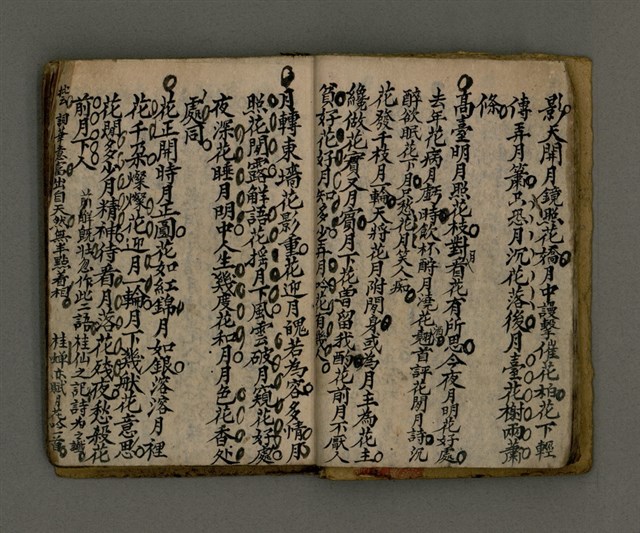 影天開月鏡照花橋月中謾擊催花柏花下輕
傳弄月簫只恐月沉花落後月臺花樹兩蕭
條
高臺明月照花枝對月看花有所思今夜月明花好處
去年花病月虧時飲杯酹月澆花趣首評花問月詩沉
醉欲眠花下月只愁花月笑人痴
花發千枝月一輪天將花月附閒身或為月主為花主
纔做花賓又月賓月下花曾留我酌花前月不厭人
貧好花好月知多少弄月吟花有幾人
月轉東墻花影重花迎月魄若為容多情月
照花間露解語花搖月下風雲破月窺花好處
夜深花睡月明中人生幾度花和月月色花香处
處同
花正開時月正圓花如紅錦月如銀溶溶月裡
花千朵燦燦花迎月一輪月下幾般花意思
花間多少月精神待看月落花殘夜愁殺花
前月下人